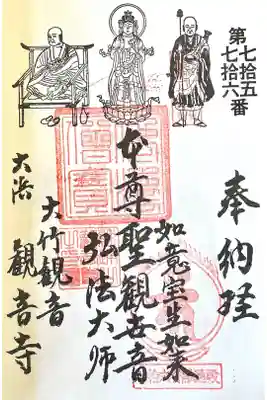 第七拾五
第七拾六番
奉納経
如意宝生如来
本尊聖観世音
弘法大師
大竹観音
大浜 観音寺